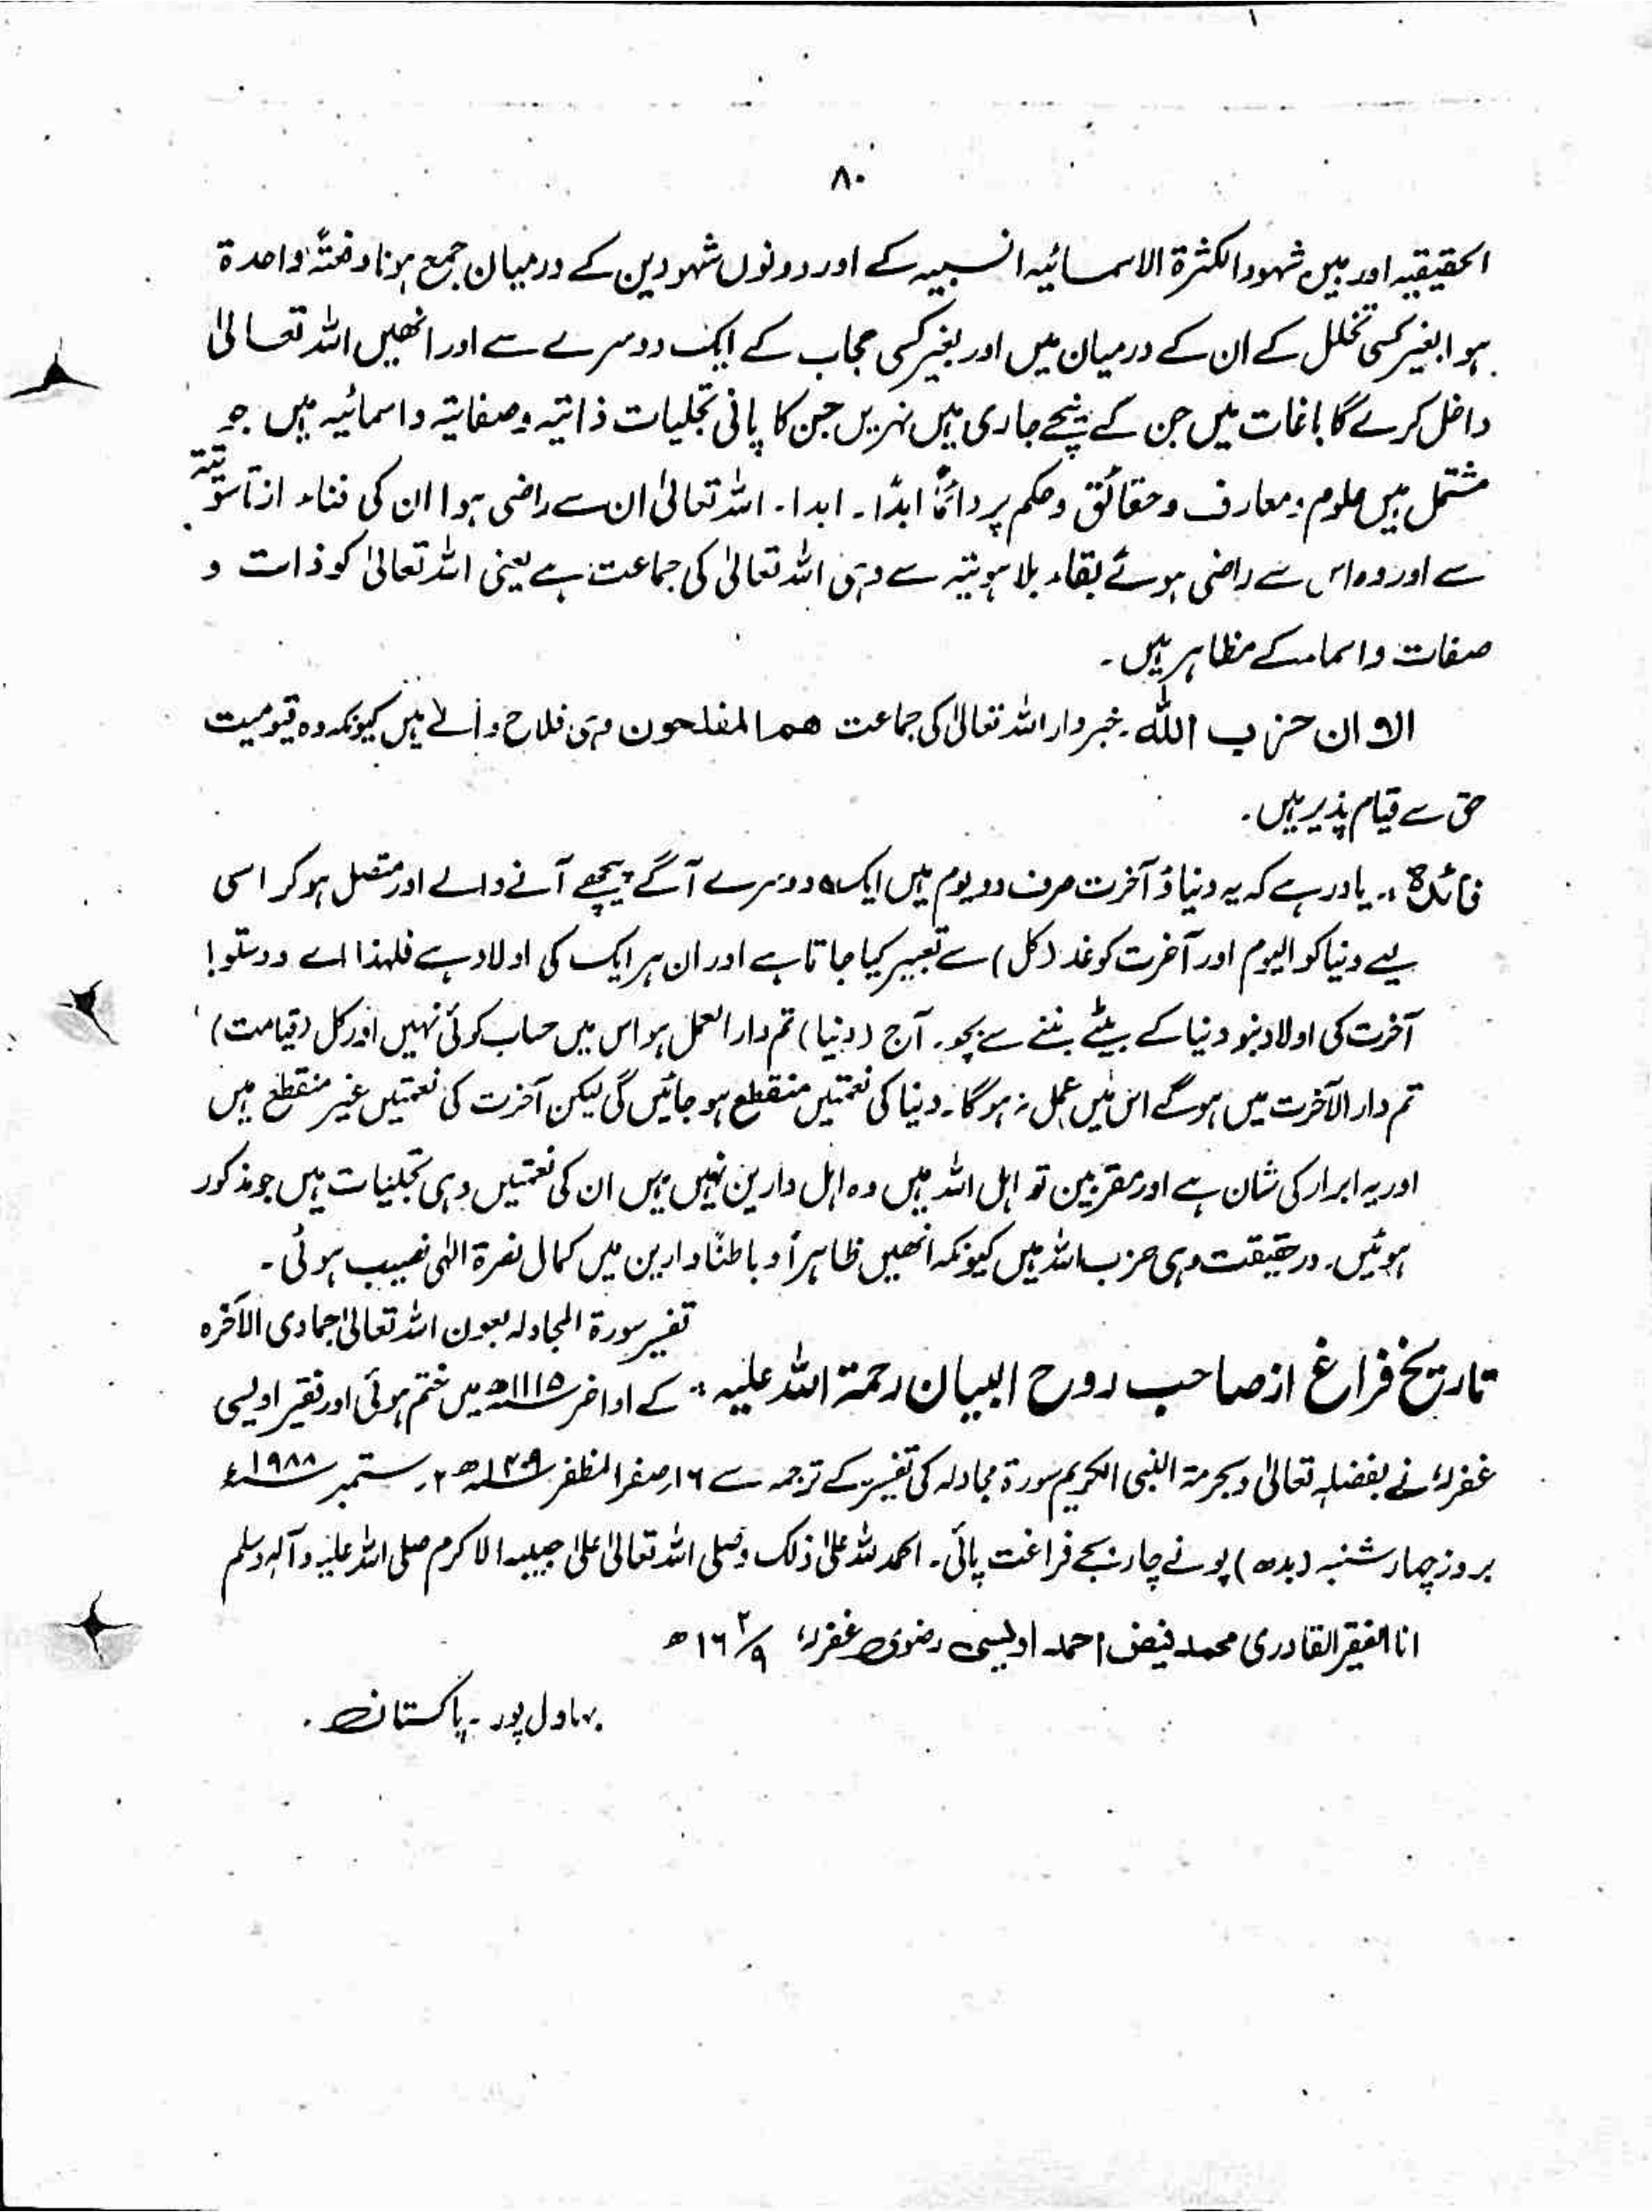 ۸۰
الحقیقیہ اور بین شہود الکثرۃ الاسمائیہ النسبیہ کے اور دونوں شہودین کے درمیان جمع ہونا دفعتہً واحدۃ
ہوا بغیر کسی تخلل کے ان کے درمیان میں اور بغیر کسی حجاب کے ایک دوسرے سے اور انھیں اللہ تعالیٰ
داخل کرے گا باغات میں جن کے نیچے جاری ہیں نہریں جن کا پانی تجلیات ذاتیہ و صفاتیہ و اسمائیہ ہیں جو
مشتمل ہیں علوم و معارف و حقائق و حکم پر دائماً ابدًا۔ ابدا۔ اللہ تعالیٰ ان سے راضی ہوا ان کی فناء از ناسوتیتہ
سے اور وہ اس سے راضی ہوئے بقاء بلاہوتیتہ سے وہی اللہ تعالیٰ کی جماعت ہے یعنی اللہ تعالیٰ کو ذات و
صفات و اسماء کے مظاہر ہیں۔
الا ان حزب اللہ۔ خبردار اللہ تعالیٰ کی جماعت ھم المفلحون وہی فلاح والے ہیں کیونکہ وہ قیومیت
حق سے قیام پذیر ہیں۔
فائدہ :۔ یاد رہے کہ یہ دنیا و آخرت صرف دو یوم ہیں ایک دوسرے آگے پیچھے آنے والے اور متصل ہو کر اسی
لیے دنیا کو الیوم اور آخرت کو غد (کل) سے تعبیر کیا جاتا ہے اور ان ہر ایک کی اولاد ہے فلہذا اے دوستو!
آخرت کی اولاد بنو دنیا کے بیٹے بننے سے بچو۔ آج (دنیا) تم دار العمل ہو اس میں حساب کوئی نہیں اور کل (قیامت)
تم دار الآخرت میں ہوگے اس میں عمل نہ ہوگا۔ دنیا کی نعمتیں منقطع ہو جائیں گی لیکن آخرت کی نعمتیں غیر منقطع ہیں
اور یہ ابرار کی شان ہے اور مقربین تو اہل اللہ ہیں وہ اہل دارین نہیں ہیں ان کی نعمتیں وہی تجلیات ہیں جو مذکور
ہوئیں۔ درحقیقت وہی حزب اللہ ہیں کیونکہ انھیں ظاہراً و باطنًا دارین میں کمال نصرۃ الٰہی نصیب ہوئی۔
تفسیر سورۃ المجادلہ بعون اللہ تعالیٰ جمادی الآخرہ
تاریخ فراغ از صاحب روح البیان رحمۃ اللہ علیہ :۔ کے اواخر ۱۱۱۵ھ میں ختم ہوئی اور فقیر اویسی
غفرلہٗ نے بفضلہ تعالیٰ و بحرمۃ النبی الکریم سورۃ مجادلہ کی تفسیر کے ترجمہ سے ۱۶ صفر المظفر ھ ۲ ستمبر ۱۹۸۸ء
بروز چہار شنبہ (بدھ) پونے چار بجے فراغت پائی۔ الحمد للہ علیٰ ذٰلک وصلی اللہ تعالیٰ علیٰ حبیبہ الاکرم صلی اللہ علیہ وآلہ وسلم
انا الفقیر القادری محمد فیض احمد اویسی رضوی غفرلہٗ ۲/۹ ۱۶ ھ
بہاول پور۔ پاکستان۔